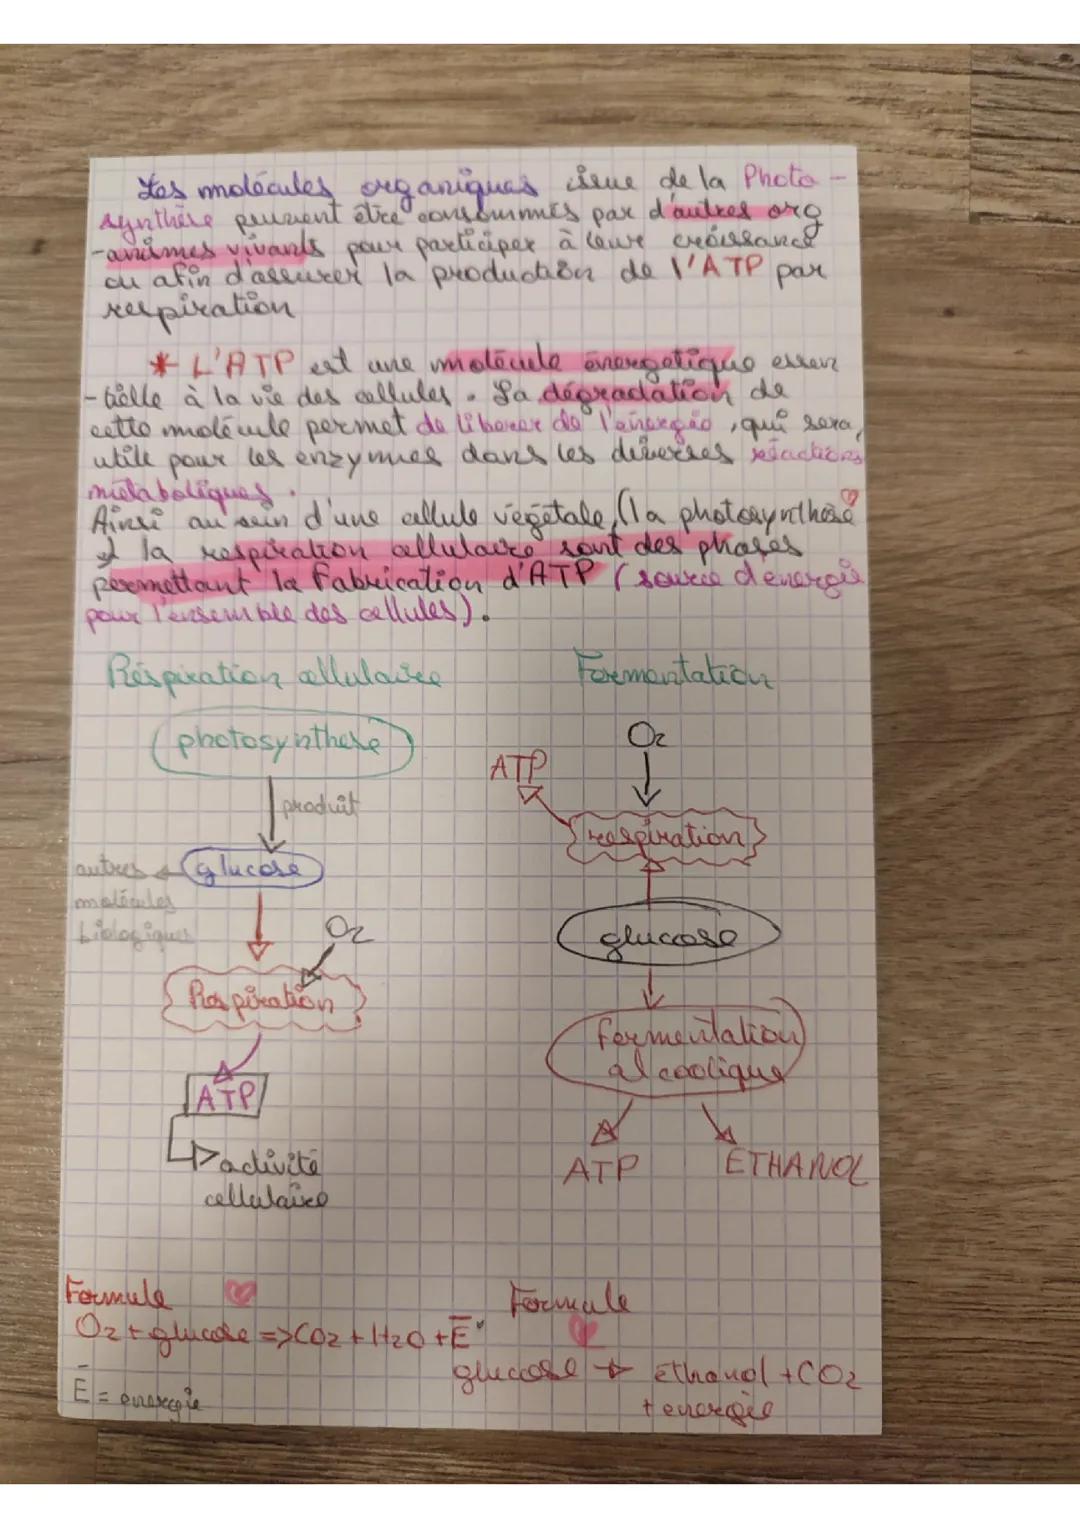 Les molécules organiques issue de la Photo-
synthèse peuvent être consommés par d'autres org
-anismes vivants pour participer à leur croissance
ou afin d'assurer la production de l'ATP par
respiration
* L'ATP est une molécule énergetique essen
-tielle à la vie des cellules. Sa dégradation de
cette molécule permet de liberer de l'énergie, qui sera
utile pour les enzymes dans les diverses réactions
métaboliques.
Ainsi au sein d'une cellule végétale, (la photosynthèse
et la respiration cellulaire sont des phases
permettant la fabrication d'ATP (source d'energie
pour l'ensemble des cellules).
Réspiration cellulaire
photosynthèse
produit
autres
molécules
biologiques
glucose
O2
Respiration
ATP
activité
cellulaire
Formule
O2 + glucose => CO2 + H2O + E
E = energie
Fermentation
O2
ATP
respiration
glucose
fermentation
alcoolique
ATP
ETHANOL
Formule
glucose → éthanol + CO2
+ energie